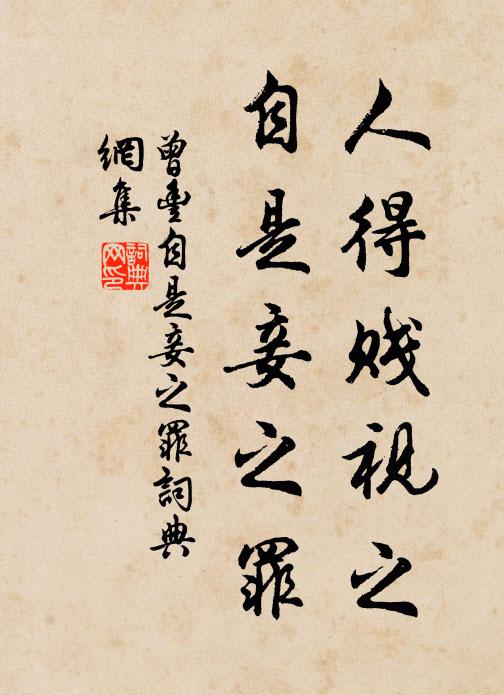 人得贱視之
自是妾之罪
曾豐自是妾之罪詞典
網集
詞典
网印